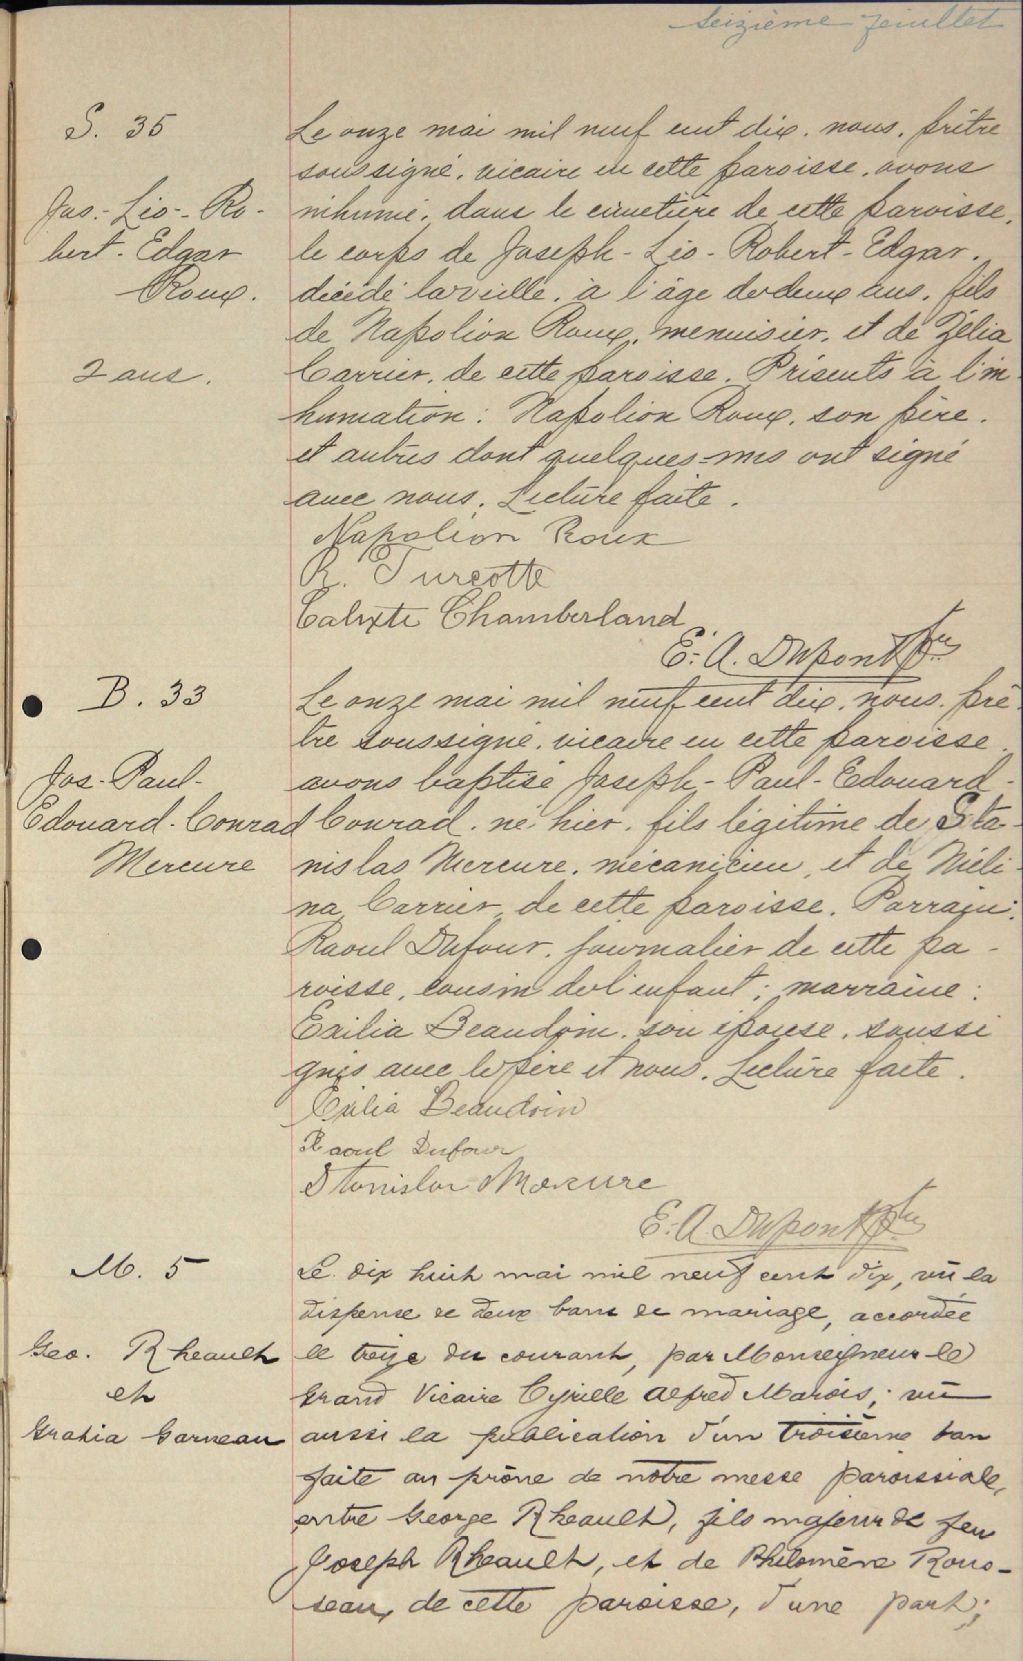 seizième feuillet
S. 35
Jos.-Léo-Ro-
bert-Edgar
Roux.
2 ans.
Le onze mai mil neuf cent dix, nous, prêtre
soussigné, vicaire en cette paroisse, avons
inhumé, dans le cimetière de cette paroisse,
le corps de Joseph-Léo-Robert-Edgar,
décédé la veille, à l'âge de deux ans, fils
de Napoléon Roux, menuisier, et de Zélia
Carrier, de cette paroisse. Présents à l'in-
humation: Napoléon Roux, son père,
et autres dont quelques-uns ont signé
avec nous. Lecture faite.
Napoléon Roux
R. Turcotte
Calixte Chamberland
E.-A. Dupont Ptre
B. 33
Jos-Paul-
Edouard-Conrad
Mercure
Le onze mai mil neuf cent dix, nous, prê-
tre soussigné, vicaire en cette paroisse,
avons baptisé Joseph-Paul-Edouard-
Conrad, né hier, fils légitime de Sta-
nislas Mercure, mécanicien, et de Méli-
na Carrier, de cette paroisse. Parrain:
Raoul Dufour, journalier de cette pa-
roisse, cousin de l'enfant; marraine:
Exilia Beaudoin, son épouse, soussi
gnés avec le père et nous. Lecture faite.
Exilia Beaudoin
Raoul Dufour
Stanislas Mercure
E.-A. Dupont Ptre
M. 5
Geo. Rheault
et
Gratia Garneau
Le dix huit mai mil neuf cent dix, vu la
dispense de deux bans de mariage, accordée
le treize du courant, par Monseigneur le
Grand Vicaire Cyrille Alfred Marois; vu
aussi la publication d'un troisième ban
faite au prône de notre messe paroissiale,
entre George Rheault, fils majeur de feu
Joseph Rheault, et de Philomène Rous-
seau, de cette paroisse, d'une part;